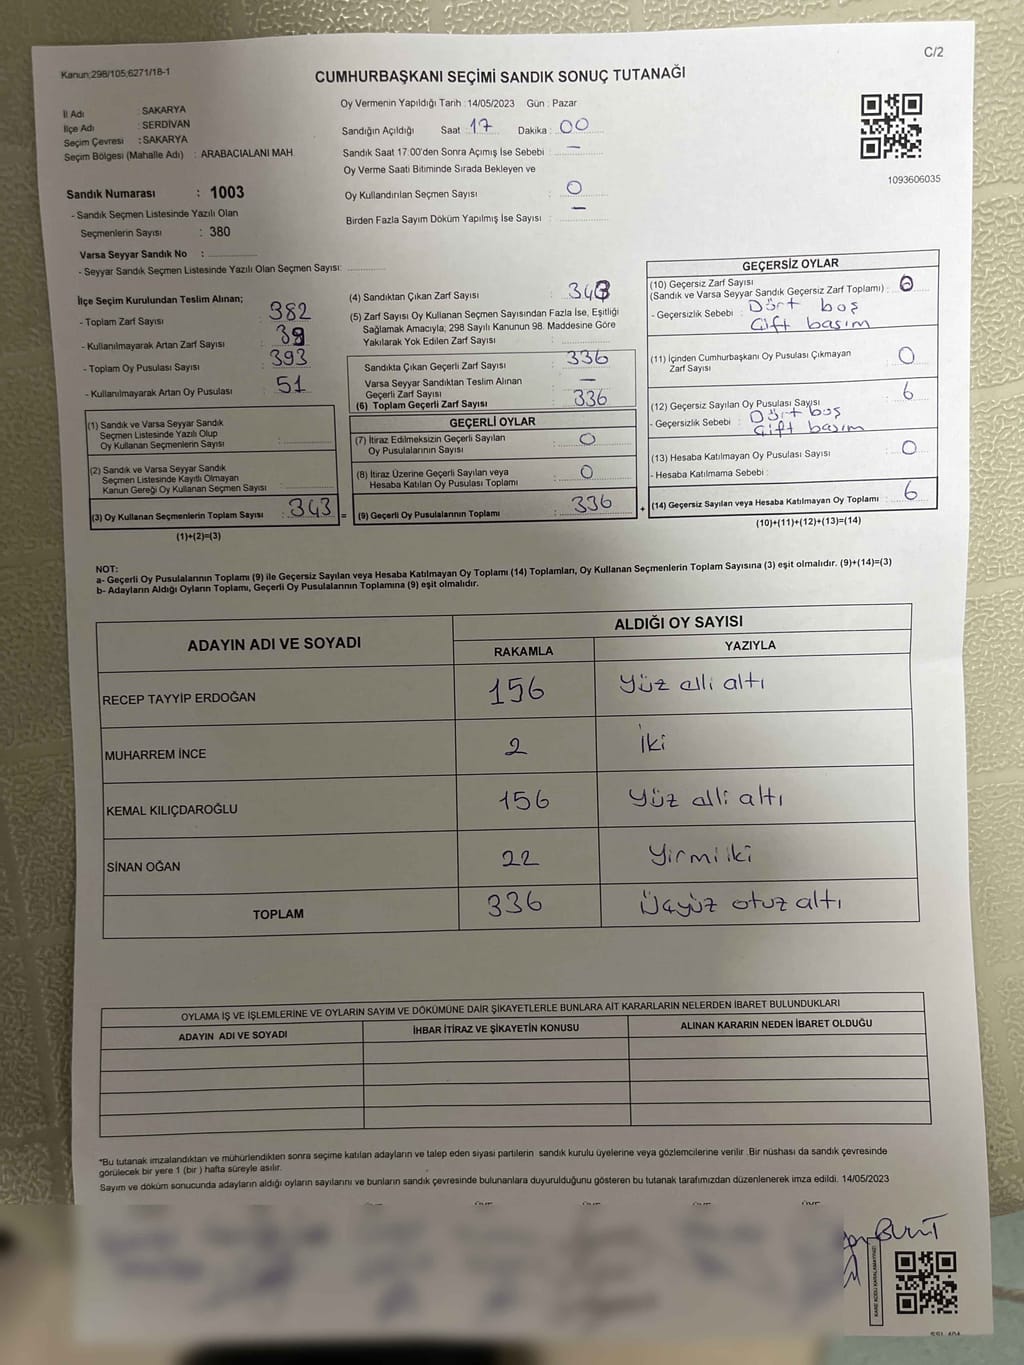 C/2
Kanun;298/105;6271/18-1
CUMHURBAŞKANI SEÇİMİ SANDIK SONUÇ TUTANAĞI
İl Adı : SAKARYA
İlçe Adı : SERDİVAN
Seçim Çevresi : SAKARYA
Seçim Bölgesi (Mahalle Adı) : ARABACIALANI MAH.
Sandık Numarası : 1003
- Sandık Seçmen Listesinde Yazılı Olan
Seçmenlerin Sayısı : 380
Varsa Seyyar Sandık No :
- Seyyar Sandık Seçmen Listesinde Yazılı Olan Seçmen Sayısı:
Oy Vermenin Yapıldığı Tarih :14/05/2023 Gün : Pazar
Sandığın Açıldığı Saat : 17 Dakika : 00
Sandık Saat 17:00'den Sonra Açımış İse Sebebi : —
Oy Verme Saati Bitiminde Sırada Bekleyen ve
Oy Kullandırılan Seçmen Sayısı : 0
Birden Fazla Sayım Döküm Yapılmış İse Sayısı : —
1093606035
İlçe Seçim Kurulundan Teslim Alınan;
- Toplam Zarf Sayısı : 382
- Kullanılmayarak Artan Zarf Sayısı :
- Toplam Oy Pusulası Sayısı : 393
- Kullanılmayarak Artan Oy Pusulası : 51
(1) Sandık ve Varsa Seyyar Sandık
Seçmen Listesinde Yazılı Olup
Oy Kullanan Seçmenlerin Sayısı :
(2) Sandık ve Varsa Seyyar Sandık
Seçmen Listesinde Kayıtlı Olmayan
Kanun Gereği Oy Kullanan Seçmen Sayısı :
(3) Oy Kullanan Seçmenlerin Toplam Sayısı : 343 =
(1)+(2)=(3)
(4) Sandıktan Çıkan Zarf Sayısı : 343
(5) Zarf Sayısı Oy Kullanan Seçmen Sayısından Fazla İse, Eşitliği
Sağlamak Amacıyla; 298 Sayılı Kanunun 98. Maddesine Göre
Yakılarak Yok Edilen Zarf Sayısı :
Sandıkta Çıkan Geçerli Zarf Sayısı : 336
Varsa Seyyar Sandıktan Teslim Alınan
Geçerli Zarf Sayısı : —
(6) Toplam Geçerli Zarf Sayısı : 336
GEÇERLİ OYLAR
(7) İtiraz Edilmeksizin Geçerli Sayılan
Oy Pusulalarının Sayısı : 0
(8) İtiraz Üzerine Geçerli Sayılan veya
Hesaba Katılan Oy Pusulası Toplamı : 0
(9) Geçerli Oy Pusulalarının Toplamı : 336 +
GEÇERSİZ OYLAR
(10) Geçersiz Zarf Sayısı
(Sandık ve Varsa Seyyar Sandık Geçersiz Zarf Toplamı) :
- Geçersizlik Sebebi : Dört boş
Çift basım
(11) İçinden Cumhurbaşkanı Oy Pusulası Çıkmayan
Zarf Sayısı : 0
(12) Geçersiz Sayılan Oy Pusulası Sayısı : 6
- Geçersizlik Sebebi : Dört boş
Çift basım
(13) Hesaba Katılmayan Oy Pusulası Sayısı : 0
- Hesaba Katılmama Sebebi :
(14) Geçersiz Sayılan veya Hesaba Katılmayan Oy Toplamı : 6
(10)+(11)+(12)+(13)=(14)
NOT:
a- Geçerli Oy Pusulalarının Toplamı (9) ile Geçersiz Sayılan veya Hesaba Katılmayan Oy Toplamı (14) Toplamları, Oy Kullanan Seçmenlerin Toplam Sayısına (3) eşit olmalıdır. (9)+(14)=(3)
b- Adayların Aldığı Oyların Toplamı, Geçerli Oy Pusulalarının Toplamına (9) eşit olmalıdır.
ADAYIN ADI VE SOYADI ALDIĞI OY SAYISI
RAKAMLA YAZIYLA
RECEP TAYYİP ERDOĞAN 156 Yüz elli altı
MUHARREM İNCE 2 İki
KEMAL KILIÇDAROĞLU 156 Yüz elli altı
SİNAN OĞAN 22 Yirmi iki
TOPLAM 336 Üçyüz otuz altı
OYLAMA İŞ VE İŞLEMLERİNE VE OYLARIN SAYIM VE DÖKÜMÜNE DAİR ŞİKAYETLERLE BUNLARA AİT KARARLARIN NELERDEN İBARET BULUNDUKLARI
ADAYIN ADI VE SOYADI İHBAR İTİRAZ VE ŞİKAYETİN KONUSU ALINAN KARARIN NEDEN İBARET OLDUĞU
*Bu tutanak imzalandıktan ve mühürlendikten sonra seçime katılan adayların ve talep eden siyasi partilerin sandık kurulu üyelerine veya gözlemcilerine verilir .Bir nüshası da sandık çevresinde
görülecek bir yere 1 (bir ) hafta süreyle asılır.
Sayım ve döküm sonucunda adayların aldığı oyların sayılarını ve bunların sandık çevresinde bulunanlara duyurulduğunu gösteren bu tutanak tarafımızdan düzenlenerek imza edildi. 14/05/2023
KARE KODU KARALAMAYINIZ!